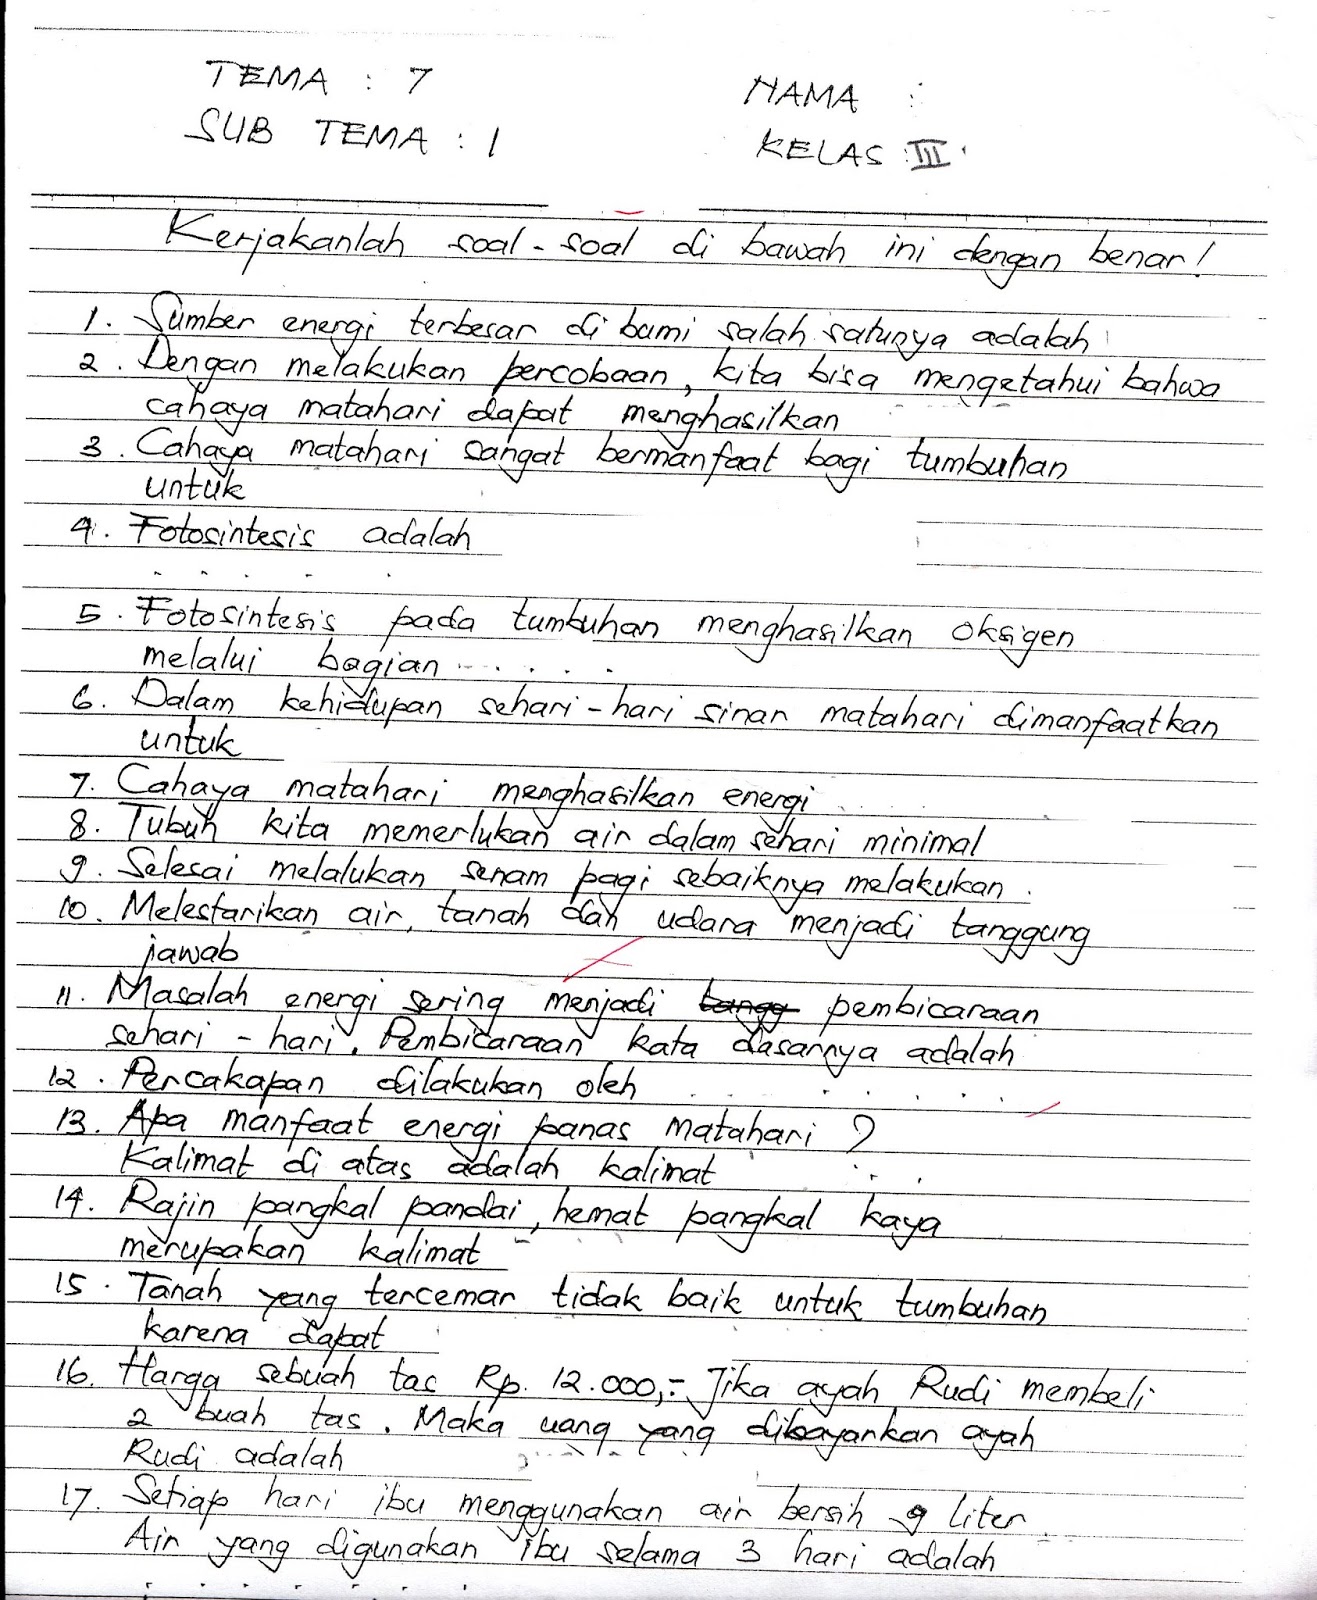 TEMA : 7
NAMA :
SUB TEMA : 1
KELAS : III
Kerjakanlah soal-soal di bawah ini dengan benar!
1. Sumber energi terbesar di bumi salah satunya adalah
2. Dengan melakukan percobaan, kita bisa mengetahui bahwa
cahaya matahari dapat menghasilkan
3. Cahaya matahari sangat bermanfaat bagi tumbuhan
untuk
4. Fotosintesis adalah
. . . . .
5. Fotosintesis pada tumbuhan menghasilkan oksigen
melalui bagian . . . . . .
6. Dalam kehidupan sehari-hari sinar matahari dimanfaatkan
untuk
7. Cahaya matahari menghasilkan energi
8. Tubuh kita memerlukan air dalam sehari minimal
9. Selesai melalukan senam pagi sebaiknya melakukan .
10. Melestarikan air, tanah dan udara menjadi tanggung
jawab
11. Masalah energi sering menjadi tangg pembicaraan
sehari-hari. Pembicaraan kata dasarnya adalah
12. Percakapan dilakukan oleh . . . . . .
13. Apa manfaat energi panas matahari ?
Kalimat di atas adalah kalimat . . .
14. Rajin pangkal pandai, hemat pangkal kaya
merupakan kalimat
15. Tanah yang tercemar tidak baik untuk tumbuhan
karena dapat
16. Harga sebuah tas Rp. 12.000,- Jika ayah Rudi membeli
2 buah tas. Maka uang yang dibayarkan ayah
Rudi adalah
17. Setiap hari ibu menggunakan air bersih 9 liter
Air yang digunakan ibu selama 3 hari adalah
. . . . . . .